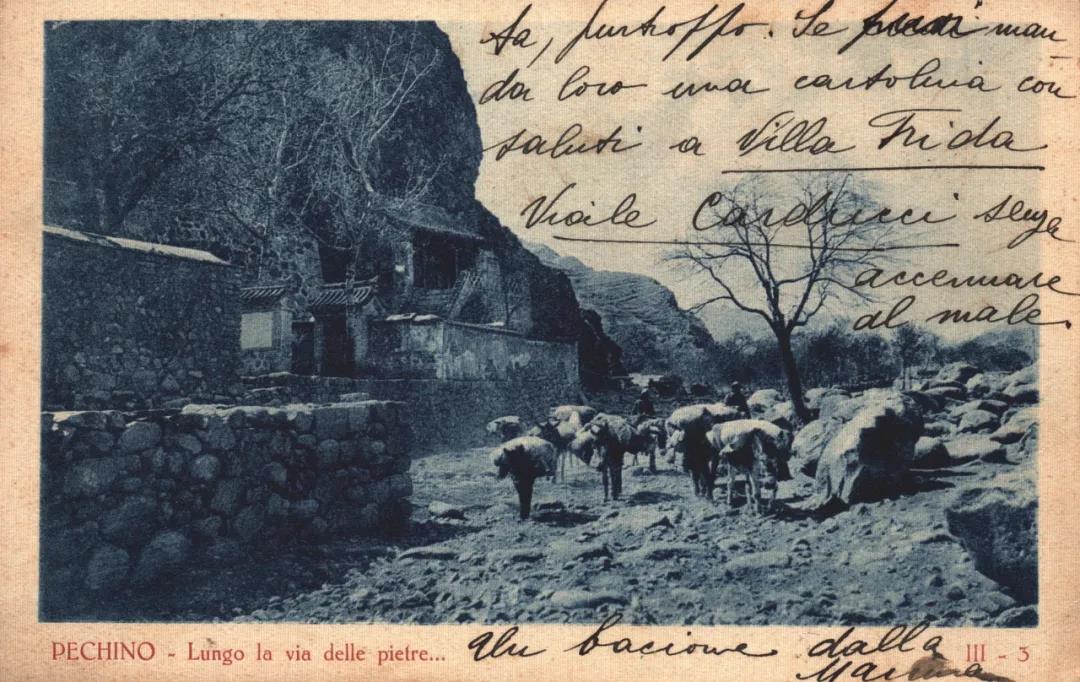 ta, purtroppo. Se puoi man
da loro una cartolina con
saluti a Villa Frida
Viale Carducci senza
accennare
al male.
PECHINO - Lungo la via delle pietre... Un bacione dalla III - 3